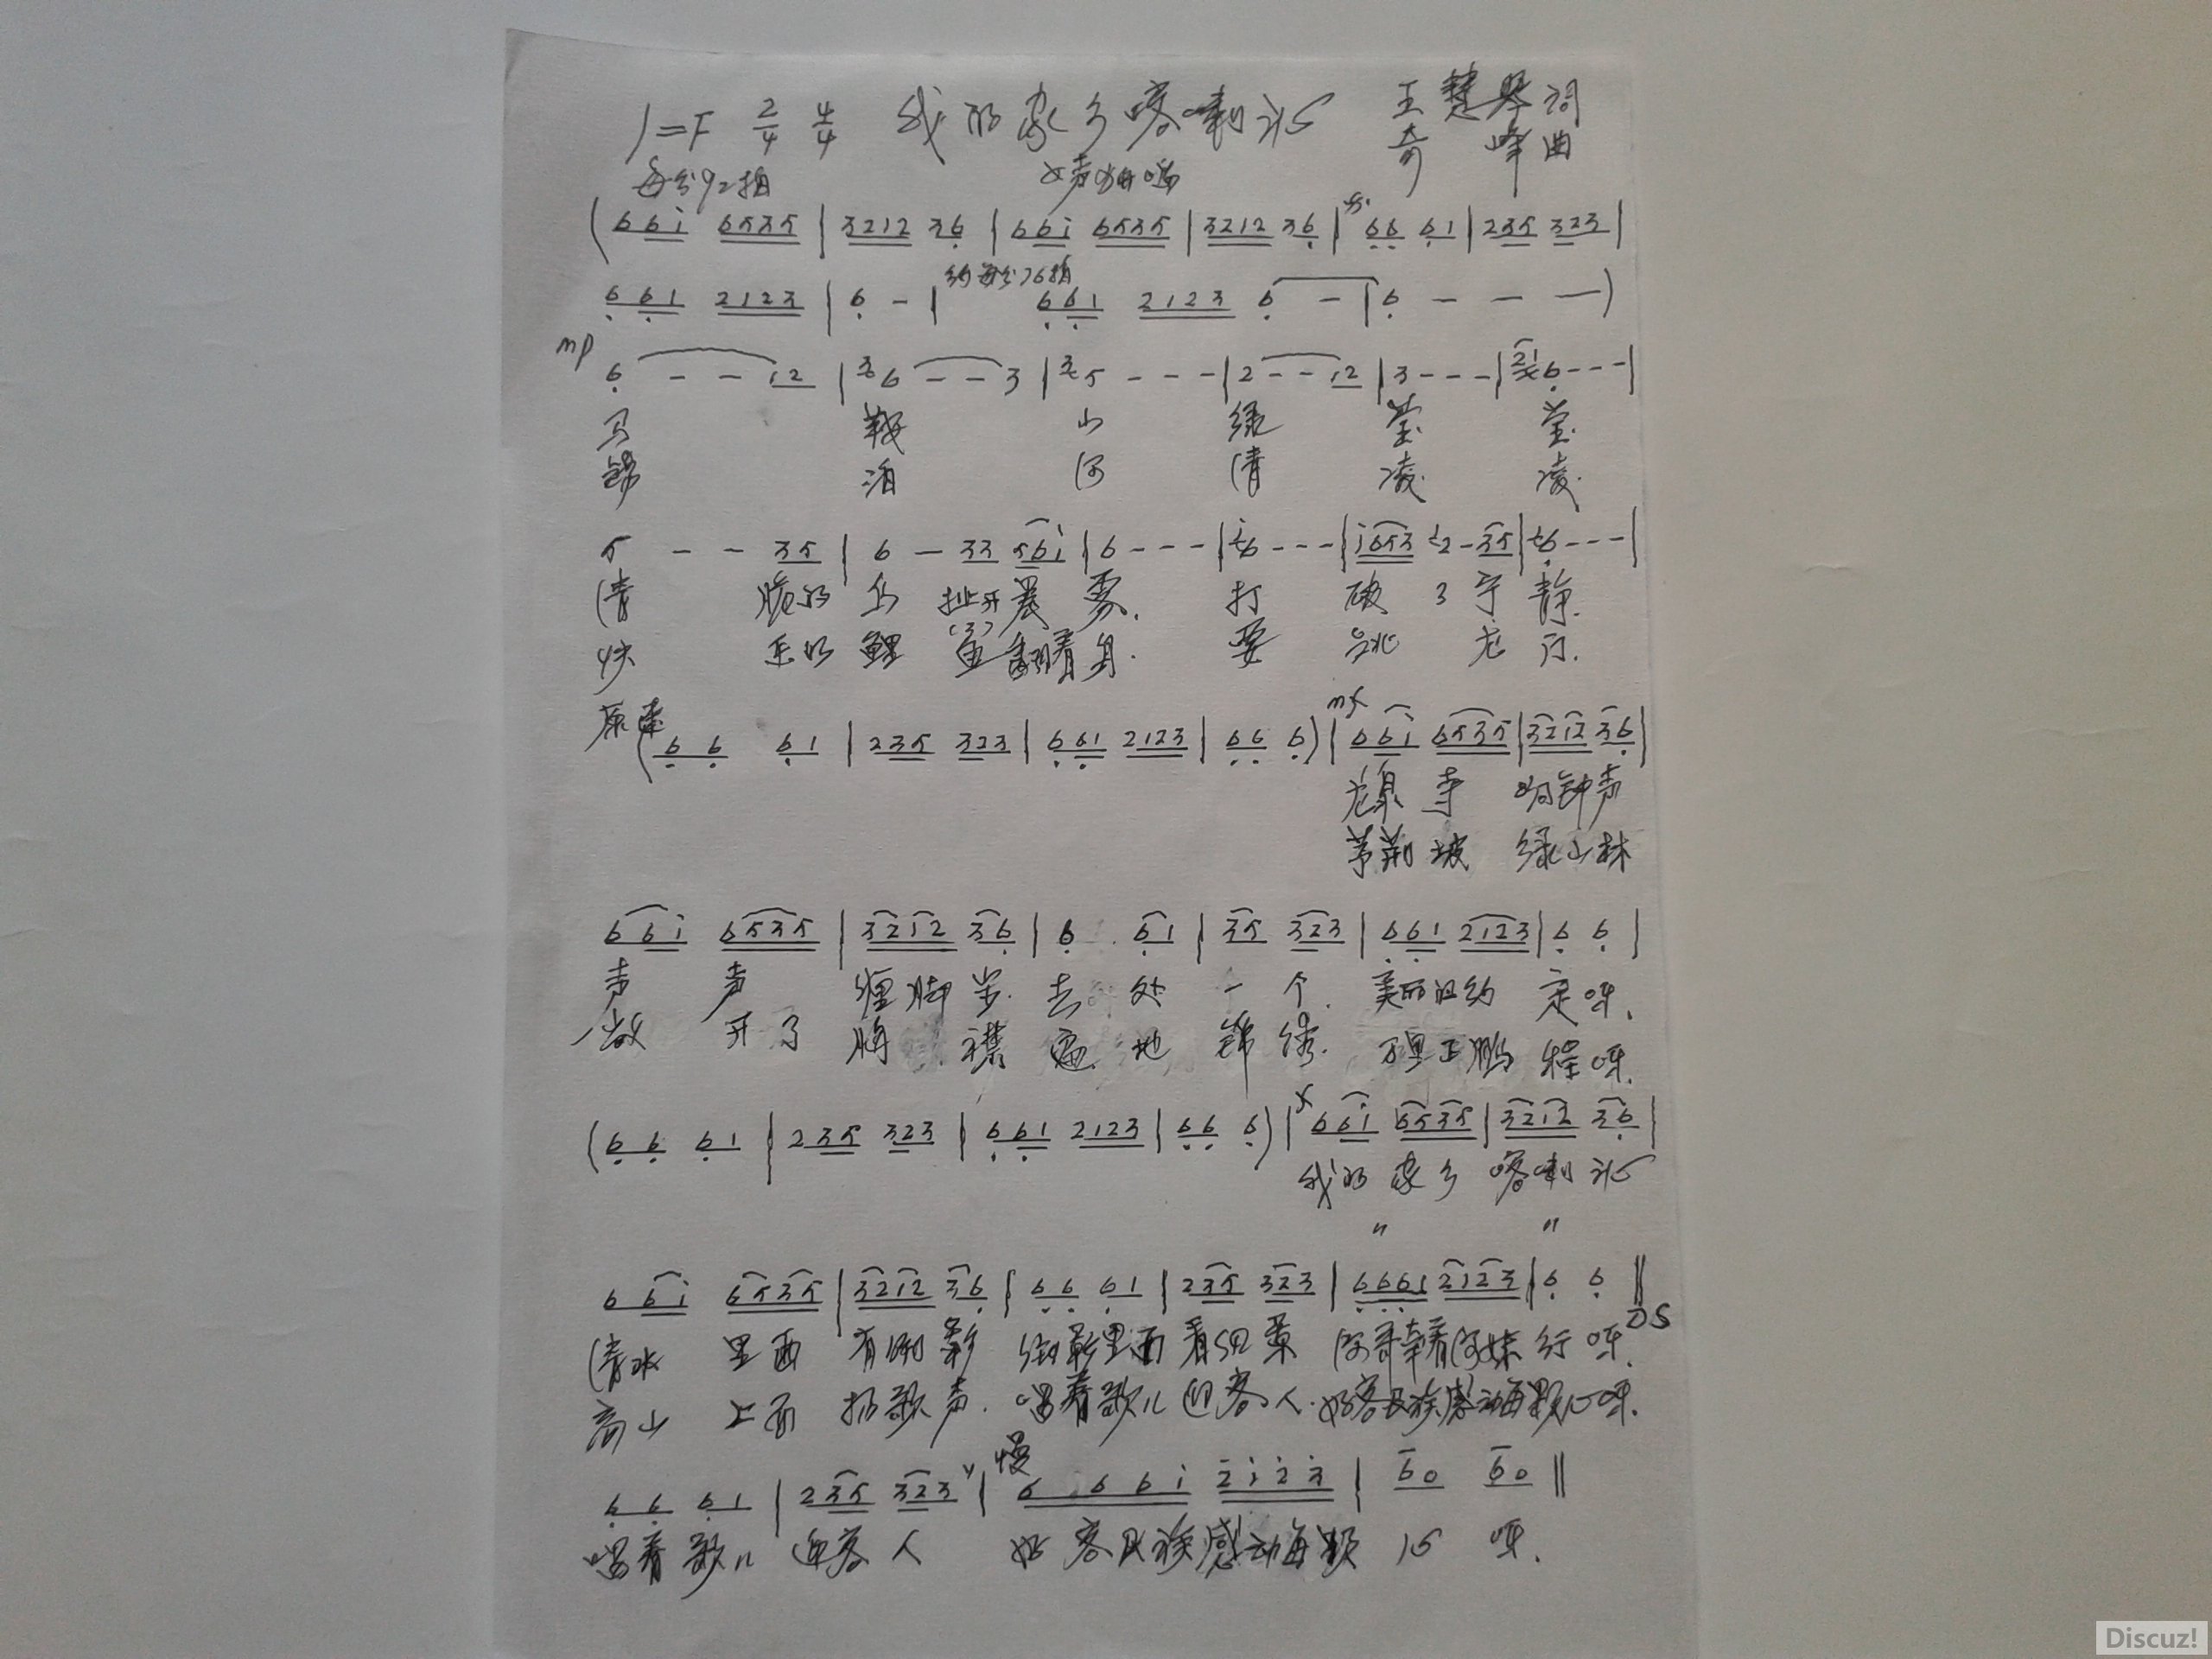 1=F 2/4 4/4 我的家乡喀喇沁 王楚琴词
奇峰曲
每分92拍 女声独唱
(6 6 i 6 5 3 5 | 3 2 1 2 3 6 | 6 6 i 6 5 3 5 | 3 2 1 2 3 6 | 6 6 6 1 | 2 3 5 3 2 3 |
6 6 1 2 1 2 3 | 6 - | 约每分76拍 6 6 1 2 1 2 3 6 - | 6 - - -)
mp 6 - - 1 2 | 3 6 - - 3 | 3 5 - - - | 2 - - 1 2 | 3 - - - | 2 1 6 - - - |
马 鞍 山 绿 莹 莹
锡 泊 河 清 凌 凌
5 - - 3 5 | 6 - 3 3 5 6 i | 6 - - - | i 6 - - - | i 6 5 3 2 - 3 5 | 6 - - - |
清 脆的 鸟 扯开晨 雾. 打 破 了 宁 静.
快 乐的 鲤 鱼翻着身. 要 跳 龙 门.
原速 (6 6 6 1 | 2 3 5 3 2 3 | 6 6 1 2 1 2 3 | 6 6 6) | mf 6 6 i 6 5 3 5 | 3 2 1 2 3 6 |
龙泉 寺 响钟声
茅荆 坡 绿山林
6 6 i 6 5 3 5 | 3 2 1 2 3 6 | 6 6 1 | 3 5 3 2 3 | 6 6 1 2 1 2 3 | 6 6 |
声 声 缠脚步. 去 处 一 个. 美丽的约 定呀.
敞 开了 胸 襟 遍 地 锦 绣. 万里正鹏 程呀.
(6 6 6 1 | 2 3 5 3 2 3 | 6 6 1 2 1 2 3 | 6 6 6) | f 6 6 i 6 5 3 5 | 3 2 1 2 3 6 |
我的 家乡 喀喇沁
〃 〃
6 6 i 6 5 3 5 | 3 2 1 2 3 6 | 6 6 6 1 | 2 3 5 3 2 3 | 6 6 6 1 2 1 2 3 | 6 6 ‖ DS
清水 里面 有倒影 倒影里面看风景 阿哥牵着阿妹行呀.
高山 上面 扬歌声. 唱着歌儿迎客人. 好客民族感动每颗心呀.
6 6 6 1 | 2 3 5 3 2 3 v | 慢 6 6 6 i 2 i 2 3 | 6 0 6 0 ‖
唱着歌儿 迎客人 好客民族感动每颗 心 呀.
Discuz!